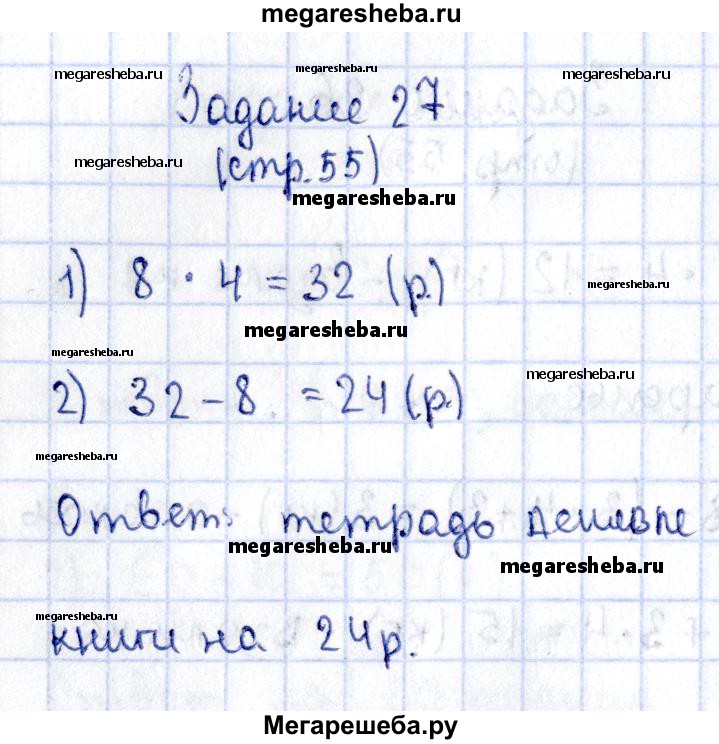 megaresheba.ru
megaresheba.ru megaresheba.ru megaresheba.ru
Задание 27
megaresheba.ru (стр.55)
megaresheba.ru
1) 8 · 4 = 32 (р.) megaresheba.ru
megaresheba.ru
megaresheba.ru
megaresheba.ru
2) 32 - 8 = 24 (р.)
megaresheba.ru
Ответ: тетрадь дешевле
megaresheba.ru
megaresheba.ru
megaresheba.ru
книги на 24 р.
Мегарешеба.ру